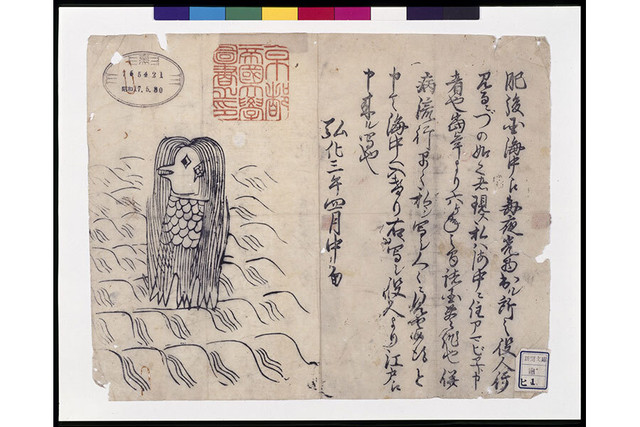 肥後国海中え毎夜光物出ル所之役人行
見るニづの如之者現ス私ハ海中ニ住アマビヱト申
者也当年より六ヶ年之間諸国豊作也併
病流行早々私写シ人々ニ見セ候得と
申て海中へ入けり右写シ役人より江戸え
申来ル写也
弘化三年四月中旬
京都
帝國大學
圖書之印
ヒ 1